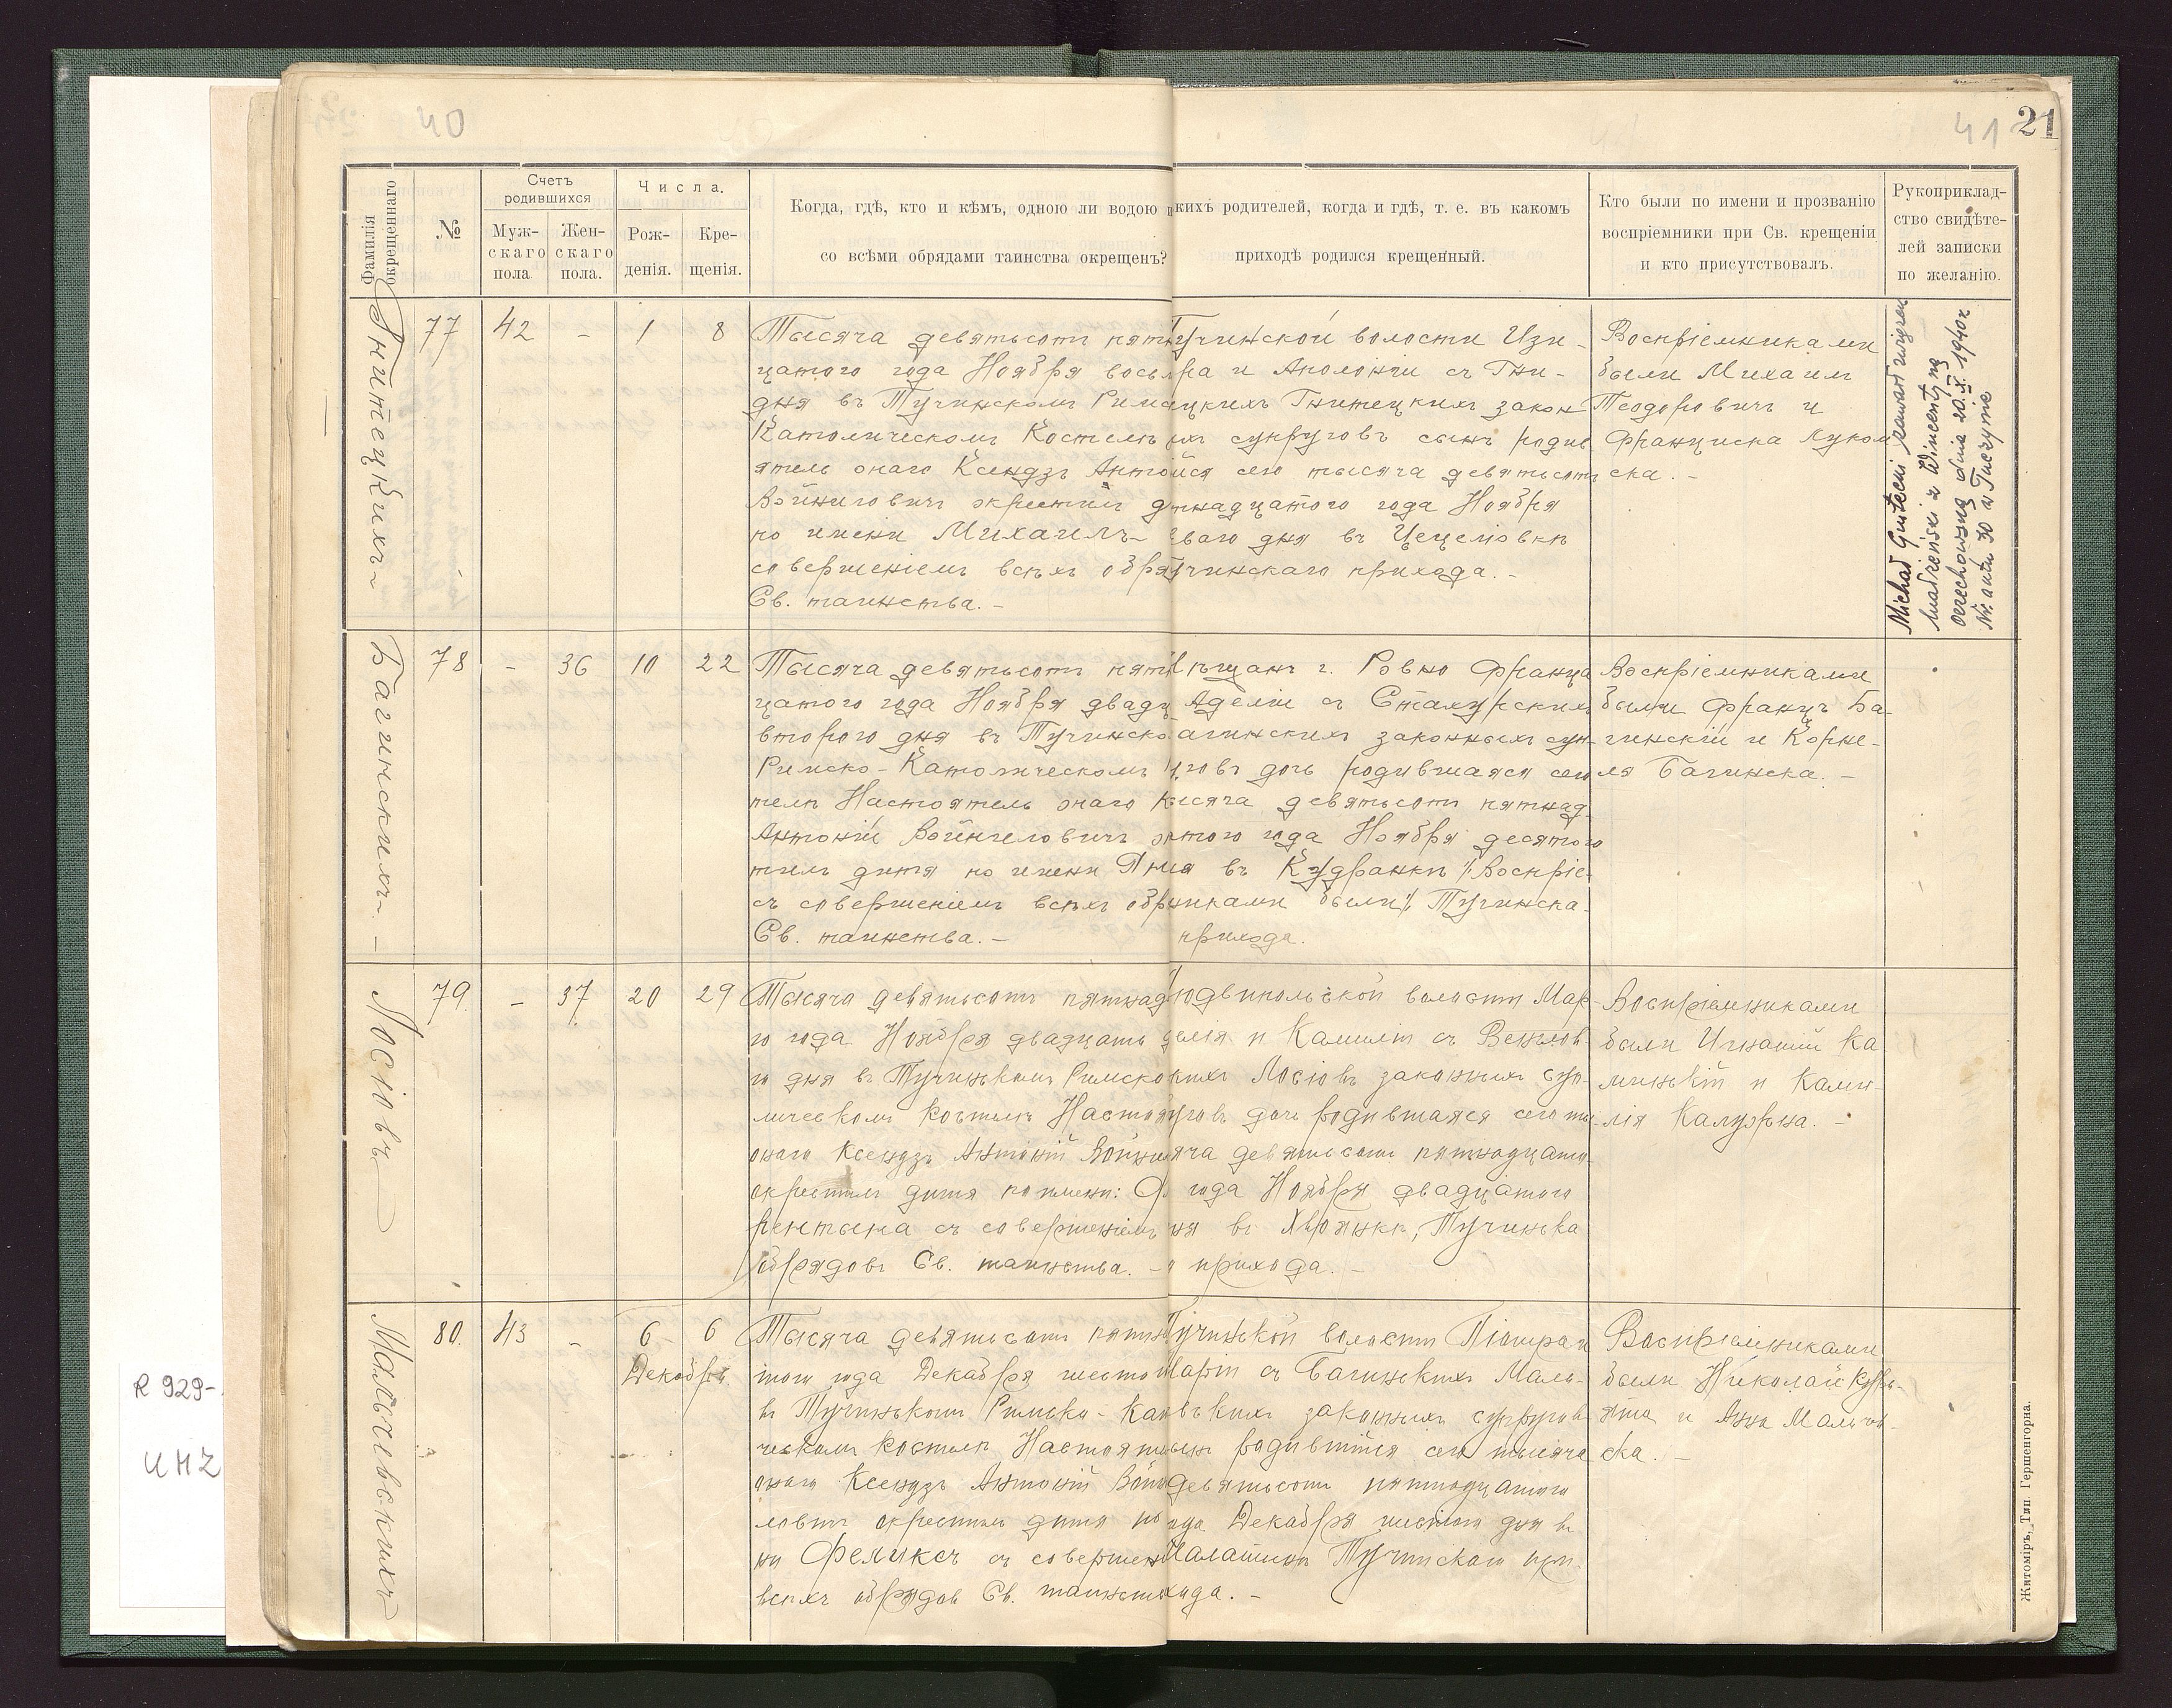 40
41 21
Фамилія окрещеннаго
№
Счетъ родившихся
Мужскаго пола
Женскаго пола.
Числа.
Рожденія.
Крещенія.
Когда, гдѣ, кто и кѣмъ, одною ли водою
со всѣми обрядами таинства окрещенъ?
кихъ родителей, когда и гдѣ, т. е. въ какомъ
приходѣ родился крещенный.
Кто были по имени и прозванію
воспріемники при Св. крещеніи
и кто присутствовалъ.
Рукоприклад-
ство свидѣте-
лей записки
по желанію.
Гнитецкихъ
77 42 - 1 8
Тысяча девятьсотъ пятн
цатого года Ноября вось
дня въ Тучинскомъ Римс
Католическомъ Костелѣ
ятель онаго Ксендзъ Анто
Войниловичъ окрестилъ д
по имени Михаилъ
совершеніемъ всѣхъ обря
Св. таинства. -
Тучинской волости Изи-
ра и Аполоніи съ Гни-
ецкихъ Гнитецкихъ закон
ыхъ супруговъ сынъ родив
ійся сего тысяча девятьсотъ
тнадцатого года Ноября
ваго дня въ Цецеліовкѣ
Тучинскаго прихода. -
Воспріемниками
были Михаилъ
Теодоровичъ и
Франциска Луком
ска. -
Michał Gnitecki zawarł związek
małżeński z Wincentyną
Orzechowską dnia 20.X.1940r.
Nr. aktu 30 w Tuczynie
Багинскихъ. -
78 - 36 10 22
Тысяча девятьсотъ пятн
цатого года Ноября двадц
второго дня въ Тучинско
Римско-Католическомъ
телѣ Настоятель онаго К
Антоній Войниловичъ ок
тилъ дитя по имени
съ совершеніемъ всѣхъ обр
Св. таинства. -
ѣщанъ г. Ровно Франца
Аделіи съ Стахурскихъ
агинскихъ законныхъ суп-
уговъ дочь родившаяся сего
ысяча девятьсотъ пятнад
того года Ноября десятого
ня въ Кудранкѣ /:Воспріе-
никами были:/ Тучинска-
прихода.
Воспріемниками
были Францъ Ба-
гинскій и Корне-
ля Багинска. -
Лосіовъ
79. - 37. 20 29
Тысяча девятьсотъ пятнад
го года Ноября двадцать д
го дня въ Тучинскомъ Римско
лическомъ Костелѣ Настоя
онаго Ксендзъ Антоній Войни
окрестилъ дитя по имени: Ф
рентына съ совершеніемъ
обрядовъ Св. таинства. -
Людвипольской волости Мар-
целія и Камиліи съ Венглов-
кихъ Лосіовъ законныхъ суп-
уговъ дочь родившаяся сего ты-
яча девятьсотъ пятнадцато-
года Ноября двадцатого
ня въ Хвоянкѣ, Тучинска
о прихода. -
Воспріемниками
были Игнатій Ка
минскій и Ками-
лія Калужна. -
Мальчевскихъ
80. 43 - 6 6
Декабря.
Тысяча девятьсотъ пятна
того года Декабря шестого
въ Тучинскомъ Римско-Като
ческомъ Костелѣ Настояте
онаго Ксендзъ Антоній Войн
ловичъ окрестилъ дитя по
ни Феликсъ съ совершені
всѣхъ обрядовъ Св. таинств
Тучинской волости Піотра и
Маріи съ Багинскихъ Маль-
евскихъ законныхъ супругов
ынъ родившійся сего тысяча
девятьсотъ пятнадцатого
ода Декабря шестого дня въ
Тучинскаго при-
хода. -
Воспріемниками
были Николай
и Анна Мальчев-
ска. -
Житоміръ, Тип. Гершенгорна.
R 929-